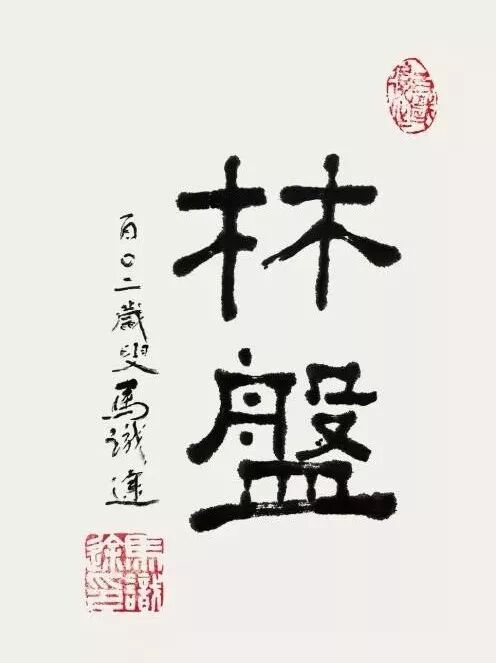 林盤
百〇二歲叟馬識途
馬識途印